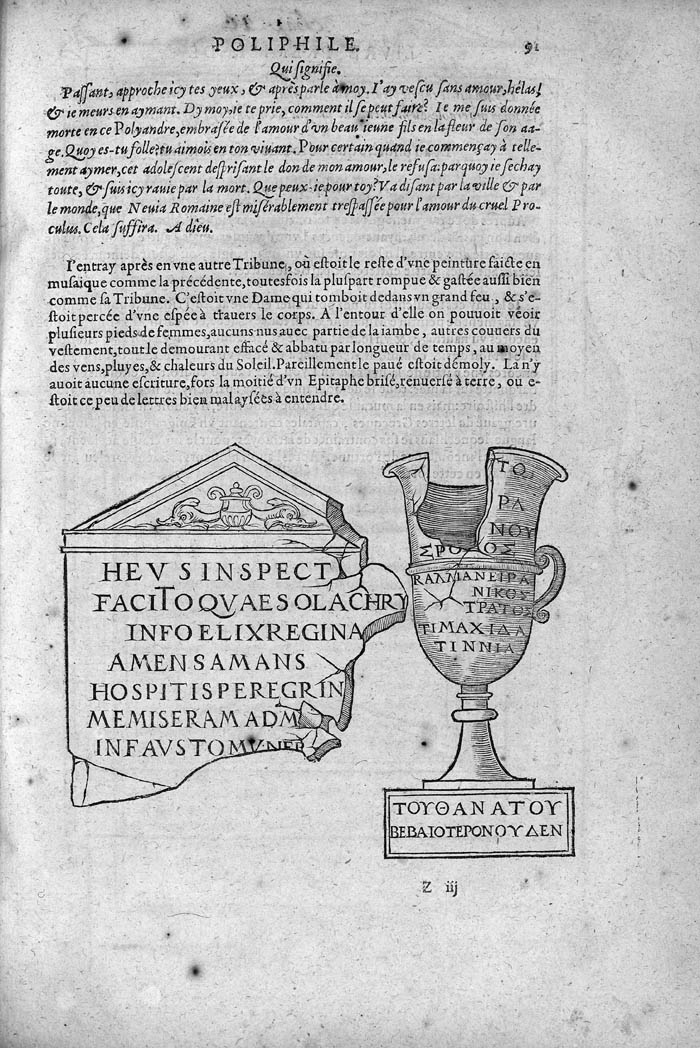 POLIPHILE. 91
Qui signifie.
Passant, approche icy tes yeux, & après parle à moy. I'ay vescu sans amour, hélas!
& ie meurs en aymant. Dy moy, ie te prie, comment il se peut faire? Ie me suis donnée
morte en ce Polyandre, embrasée de l'amour d'vn beau ieune fils en la fleur de son aa-
ge. Quoy es-tu folle? tu aimois en ton viuant. Pour certain quand ie commençay à telle-
ment aymer, cet adolescent desprisant le don de mon amour, le refusa: parquoy ie sechay
toute, & suis icy rauie par la mort. Que peux-ie pour toy? Va disant par la ville & par
le monde, que Neuia Romaine est misérablement trespassée pour l'amour du cruel Pro-
culus. Cela suffira. A dieu.
I'entray après en vne autre Tribune, où estoit le reste d'vne peinture faicte en
musaique comme la précédente, toutesfois la pluspart rompue & gastée aussi bien
comme sa Tribune. C'estoit vne Dame qui tomboit dedans vn grand feu, & s'e-
stoit percée d'vne espée à trauers le corps. A l'entour d'elle on pouuoit véoir
plusieurs pieds de femmes, aucuns nus auec partie de la iambe, autres couuers du
vestement, tout le demourant effacé & abbatu par longueur de temps, au moyen
des vens, pluyes, & chaleurs du Soleil. Pareillement le paué estoit démoly. Là n'y
auoit aucune escriture, fors la moitié d'vn Epitaphe brisé, renuersé à terre, où e-
stoit ce peu de lettres bien malaysées à entendre.
HEVS INSPECT
FACITO QVAESO LACHRY
INFOELIX REGINA
AMENS AMANS
HOSPITIS PEREGRIN
ME MISERAM ADM
INFAVSTO MVNER
ΤΩ
ΡΑ
ΝΟΥ
ΣΡΟΦΟΣ
ΚΑΛΛΙΑΝΕΙΡΑ
ΝΙΚΟΣ
ΤΡΑΤΟΣ
ΤΙΜΑΧΙΔΑ
ΤΙΝΝΙΑ
ΤΟΥΘΑΝΑΤΟΥ
ΒΕΒΑΙΟΤΕΡΟΝΟΥΔΕΝ
Z iij